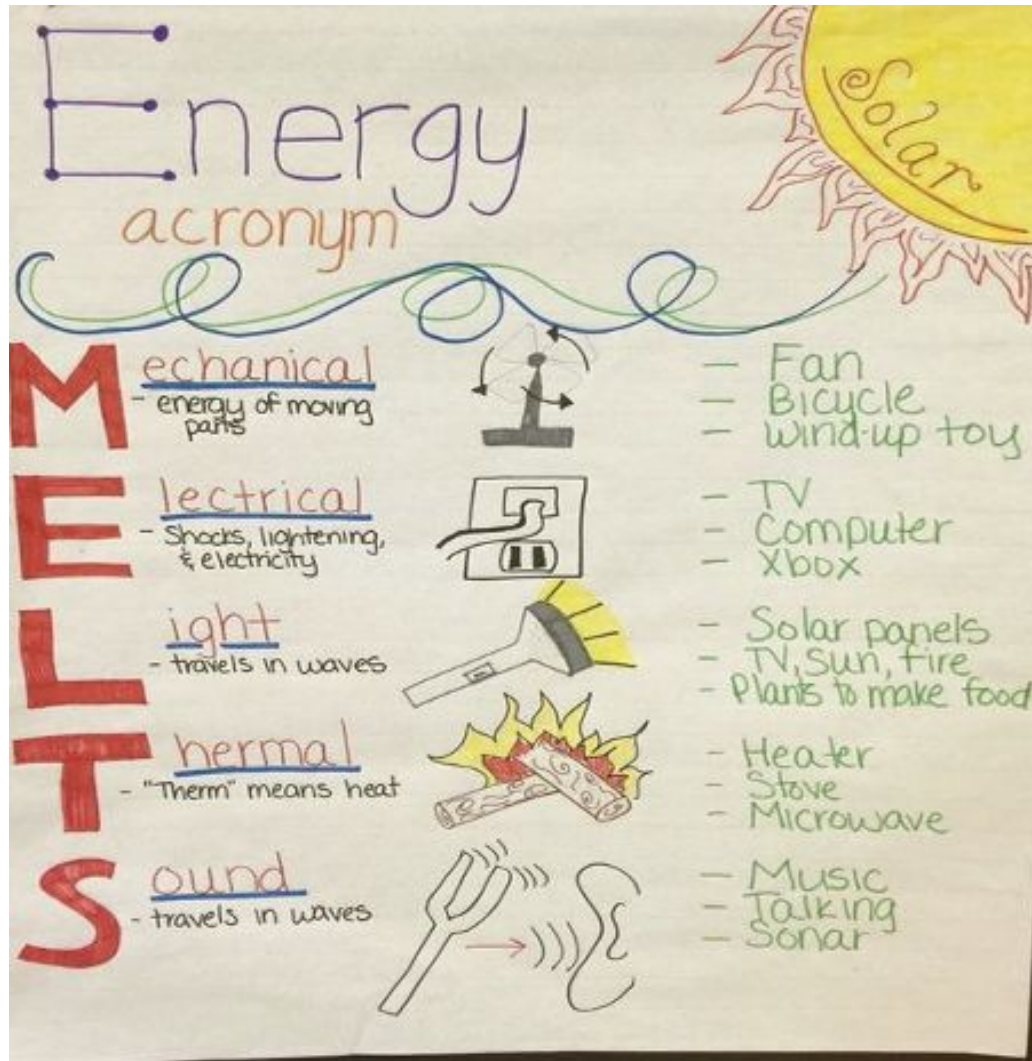 Energy
acronym
Solar
Mechanical
- energy of moving
parts
- Fan
- Bicycle
- Wind-up toy
Electrical
- Shocks, lightening,
& electricity
- TV
- Computer
- Xbox
Light
- travels in waves
- Solar panels
- TV, Sun, fire
- Plants to make food
Thermal
- "Therm" means heat
- Heater
- Stove
- Microwave
Sound
- travels in waves
- Music
- Talking
- Sonar